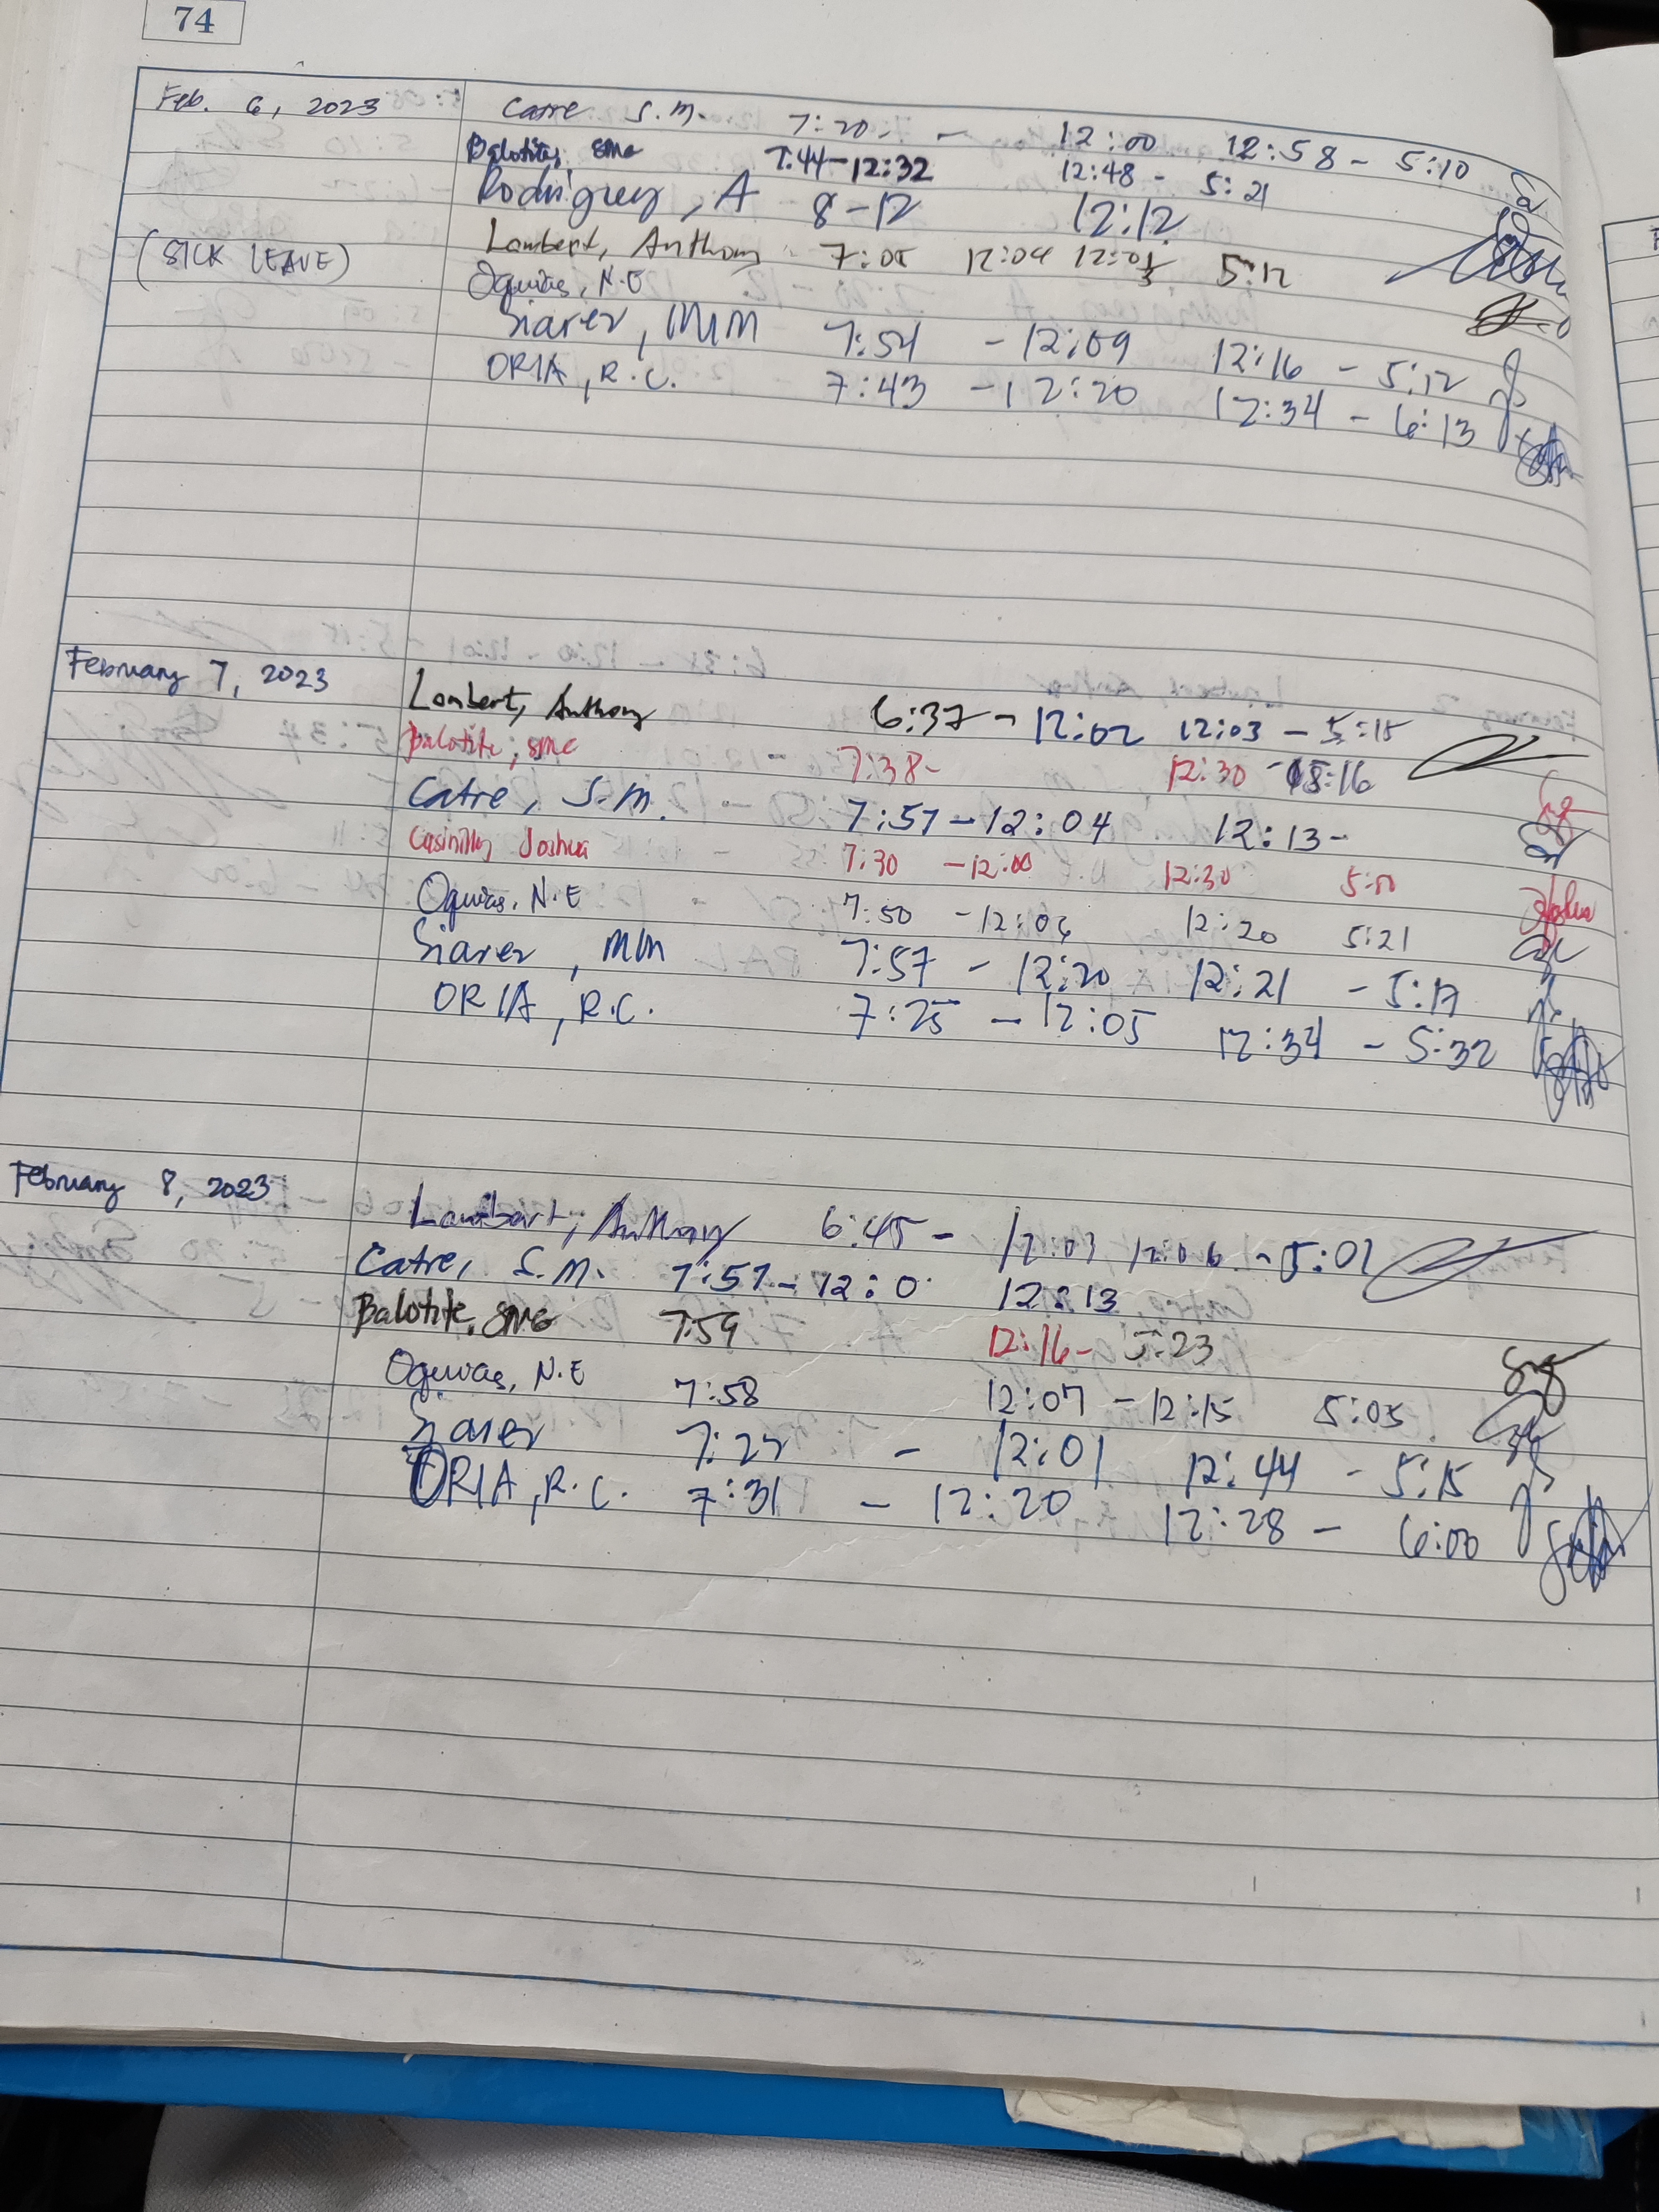 74
Feb. 6, 2023 Catre S.M. 7:20 - 12:00 12:58 - 5:10
Balotite, SMG 7:44-12:32 12:48 - 5:21
Rodriguez, A 8-12 12:12
Lambert, Anthony 7:05 12:04 5:12
(SICK LEAVE) Oquias, N.E
Siarez, MM 7:54 - 12:09 12:16 - 5:12
ORIA, R.C. 7:43 - 12:20 12:34 - 6:13
February 7, 2023 Lambert, Anthony 6:37 - 12:02 12:03 - 5:15
Balotite, SMG 7:38- 12:30 - 5:16
Catre, S.M. 7:57-12:04 12:13-
Joshua 7:30 -12:00 12:30 5:00
Oquias, N.E 7:50 -12:04 12:20 5:21
Siarez, MM 7:57 - 12:20 12:21 - 5:17
ORIA, R.C. 7:25 - 12:05 12:34 - 5:32
February 8, 2023 Lambert, Anthony 6:45 - 12:03 12:06 - 5:01
Catre, S.M. 7:57-12:0 12:13
Balotite, SMG 7:59 12:16- 5:23
Oquias, N.E 7:58 12:07 - 12:15 5:05
Siarez 7:22 - 12:01 12:44 - 5:15
ORIA, R.C. 7:31 - 12:20 12:28 - 6:00